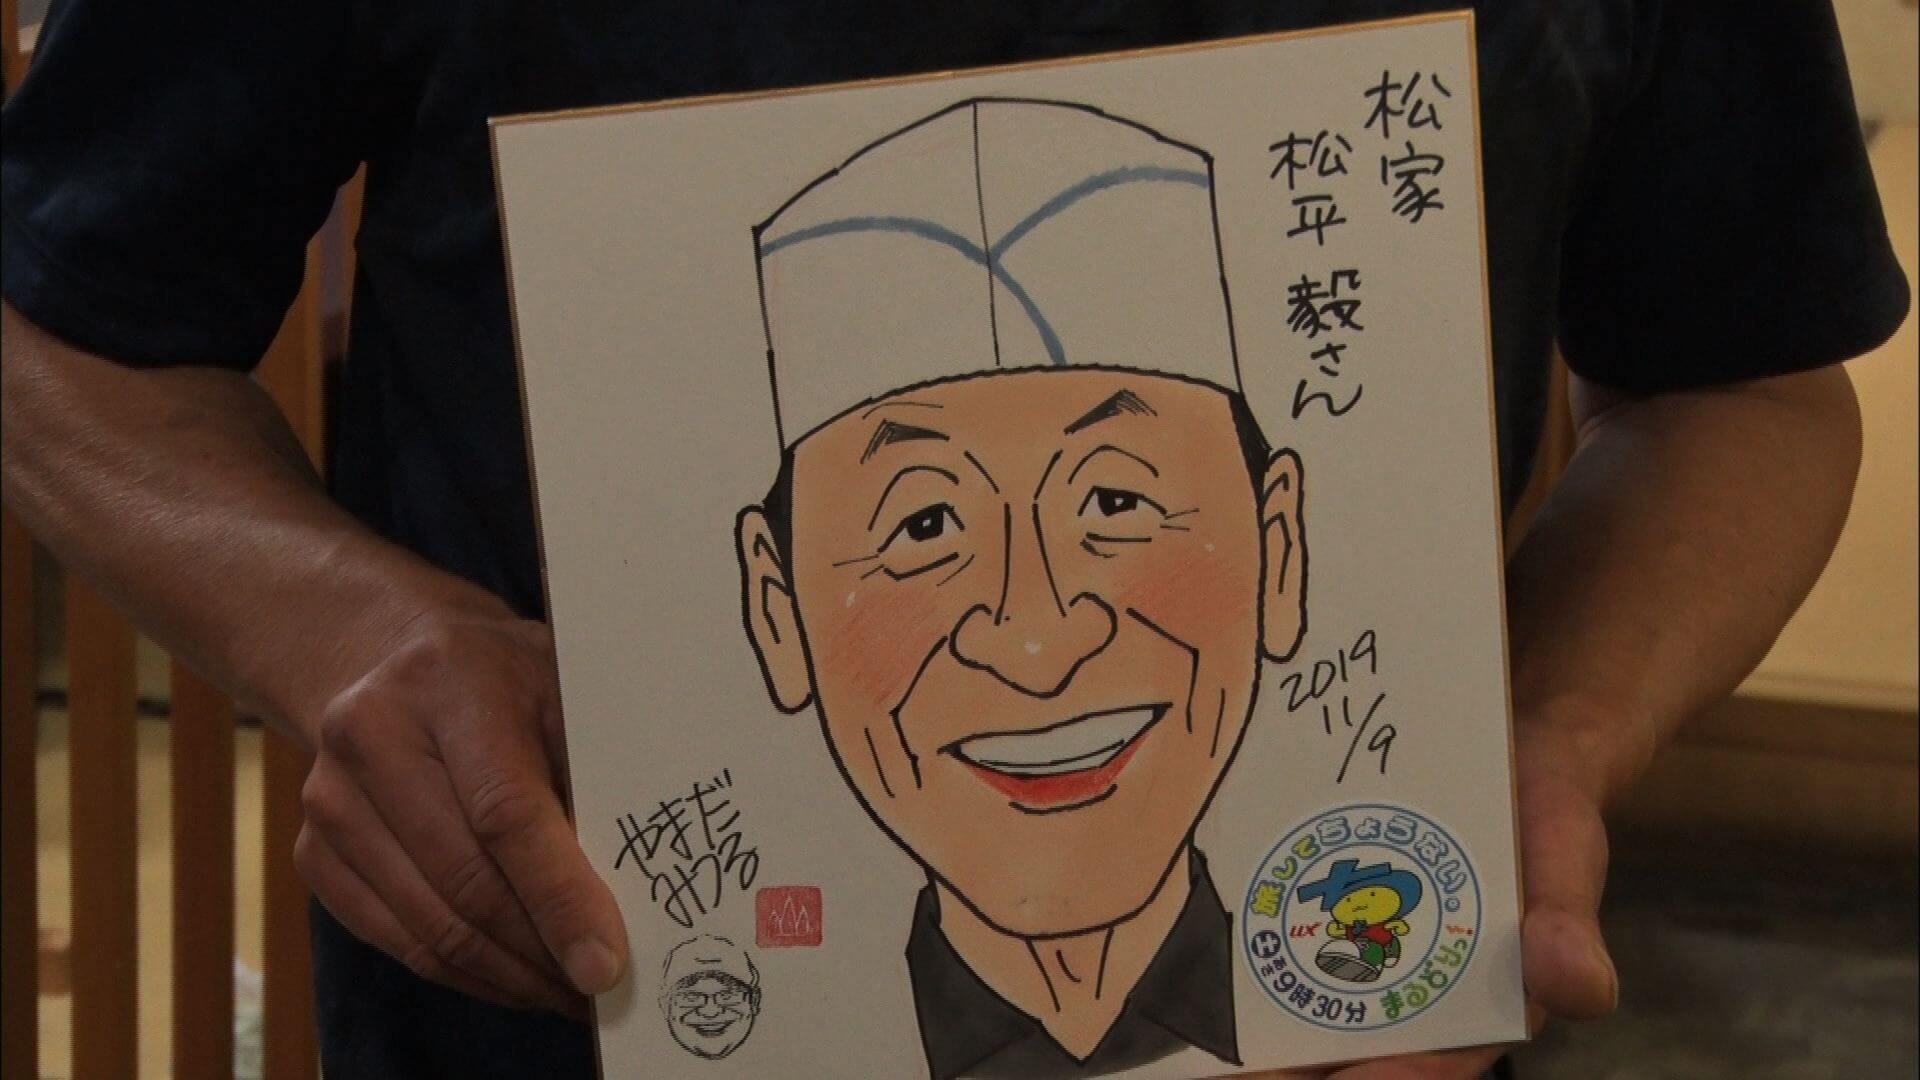 松家
松平 毅さん
2019
11/9
やまだ
みつる
旅してちょうない。
UX
土 あさ9時30分 まるどりっ!